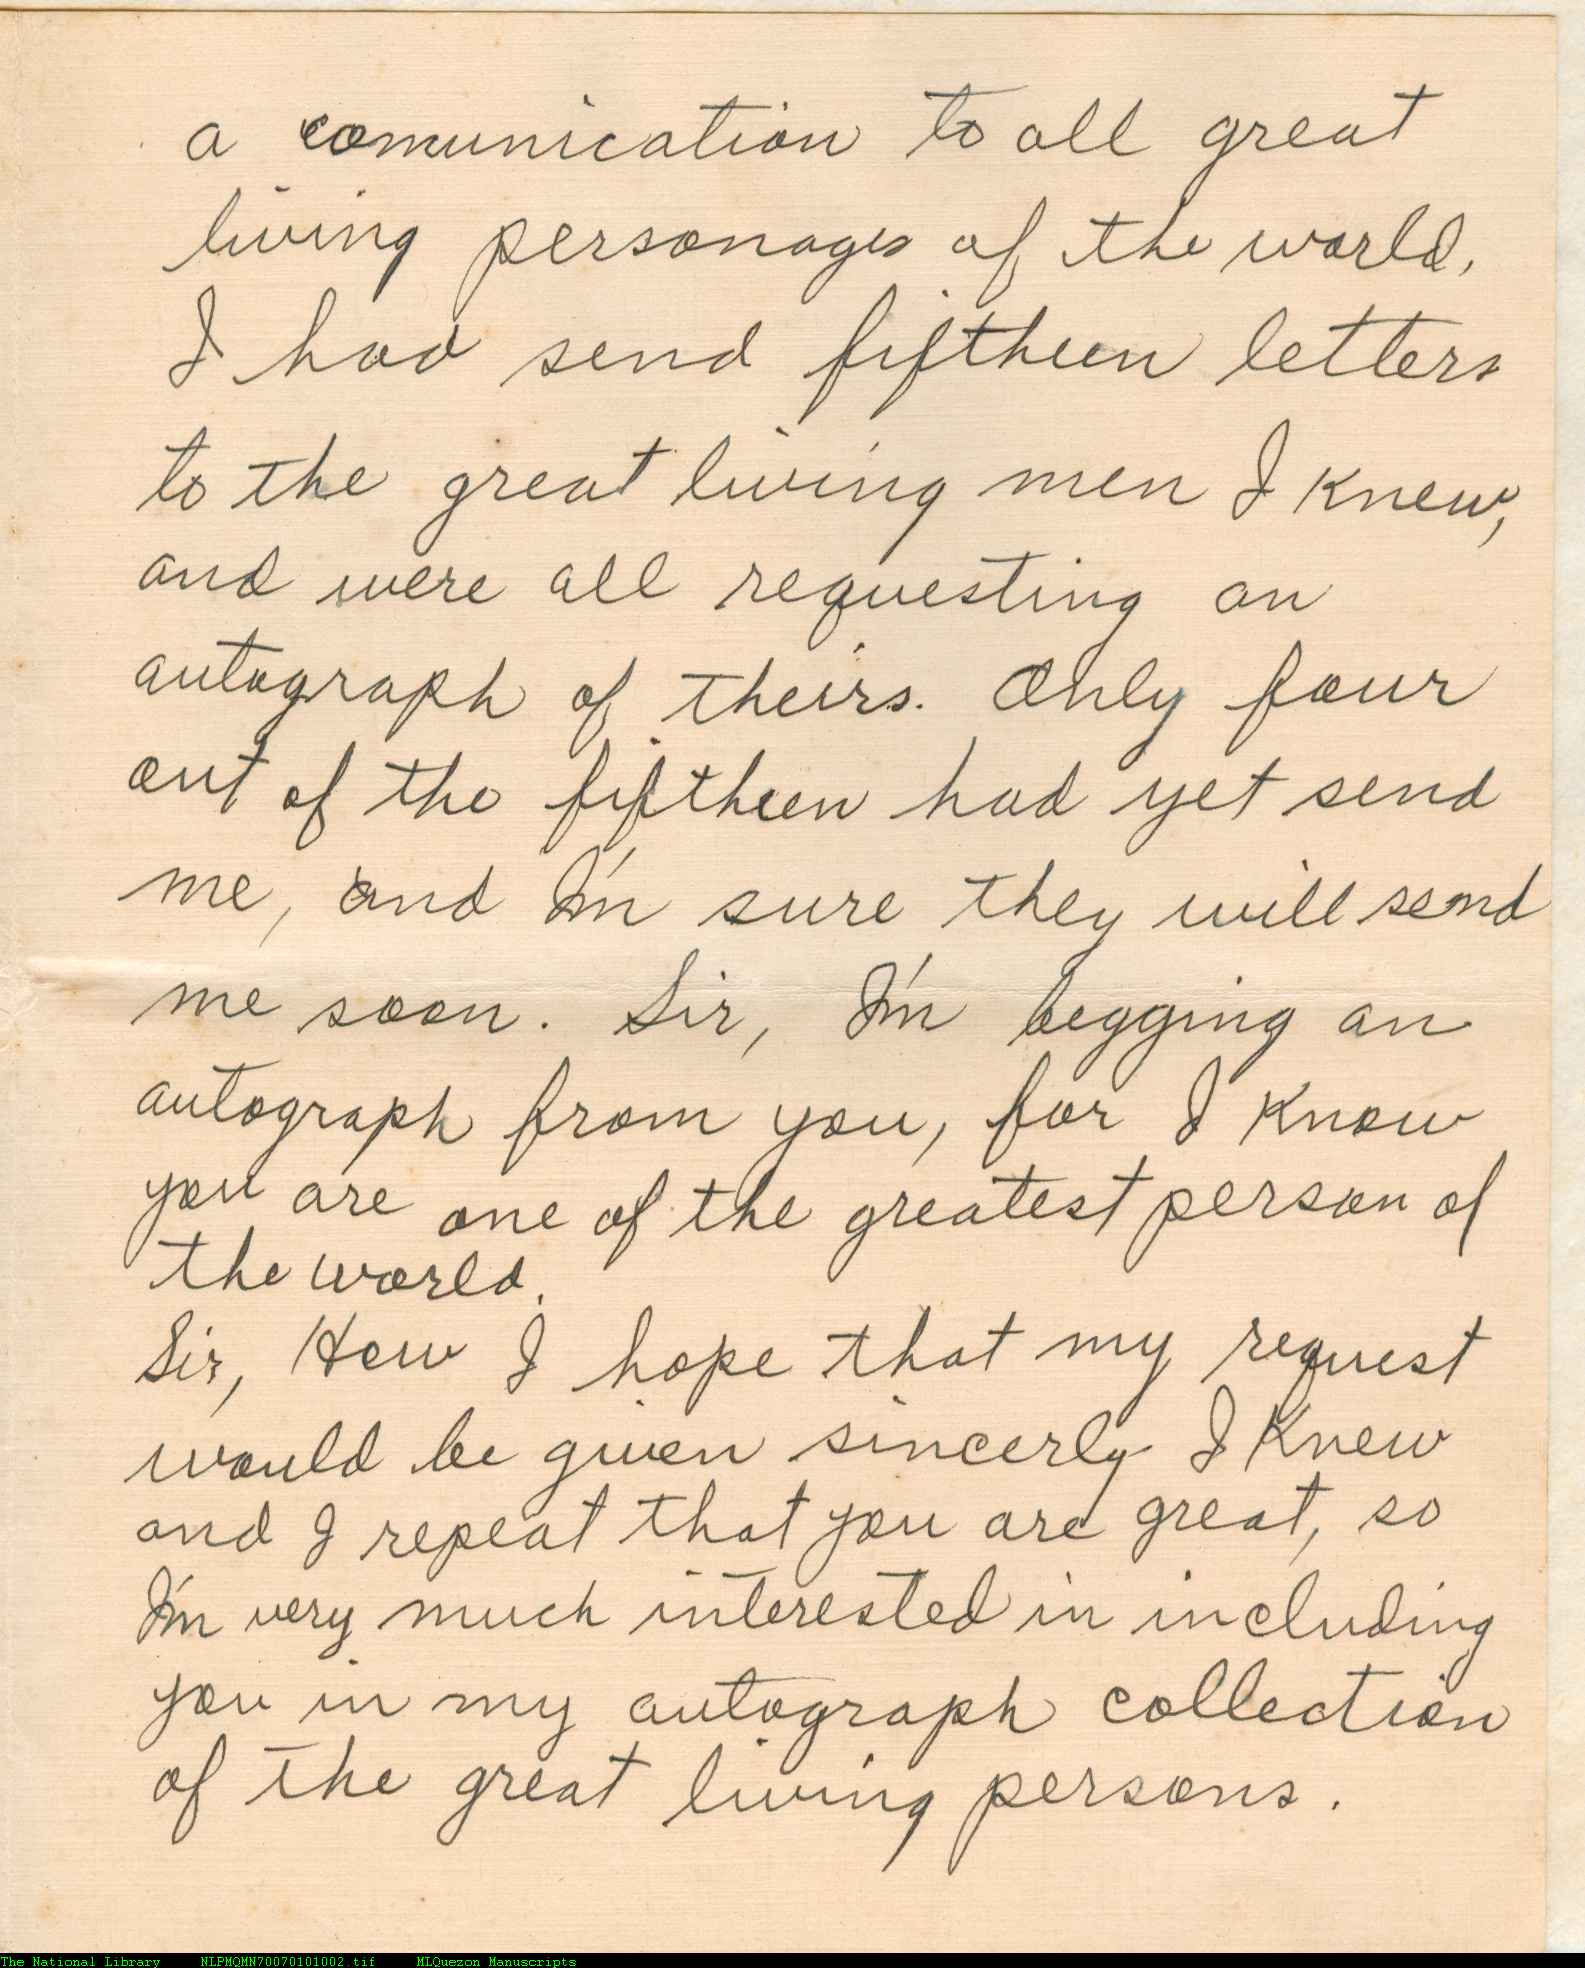 a comunication to all great
living personages of the world,
I had send fiftheen letters
to the great living men I knew,
and were all requesting an
autograph of theirs. Only four
out of the fiftheen had yet send
me, and I'm sure they will send
me soon. Sir, I'm begging an
autograph from you, for I know
you are one of the greatest person of
the world.
Sir, How I hope that my request
would be given sincerly I knew
and I repeat that you are great, so
I'm very much interested in including
you in my autograph collection
of the great living persons.
The National Library NLPMQMN70070101002.tif MLQuezon Manuscripts